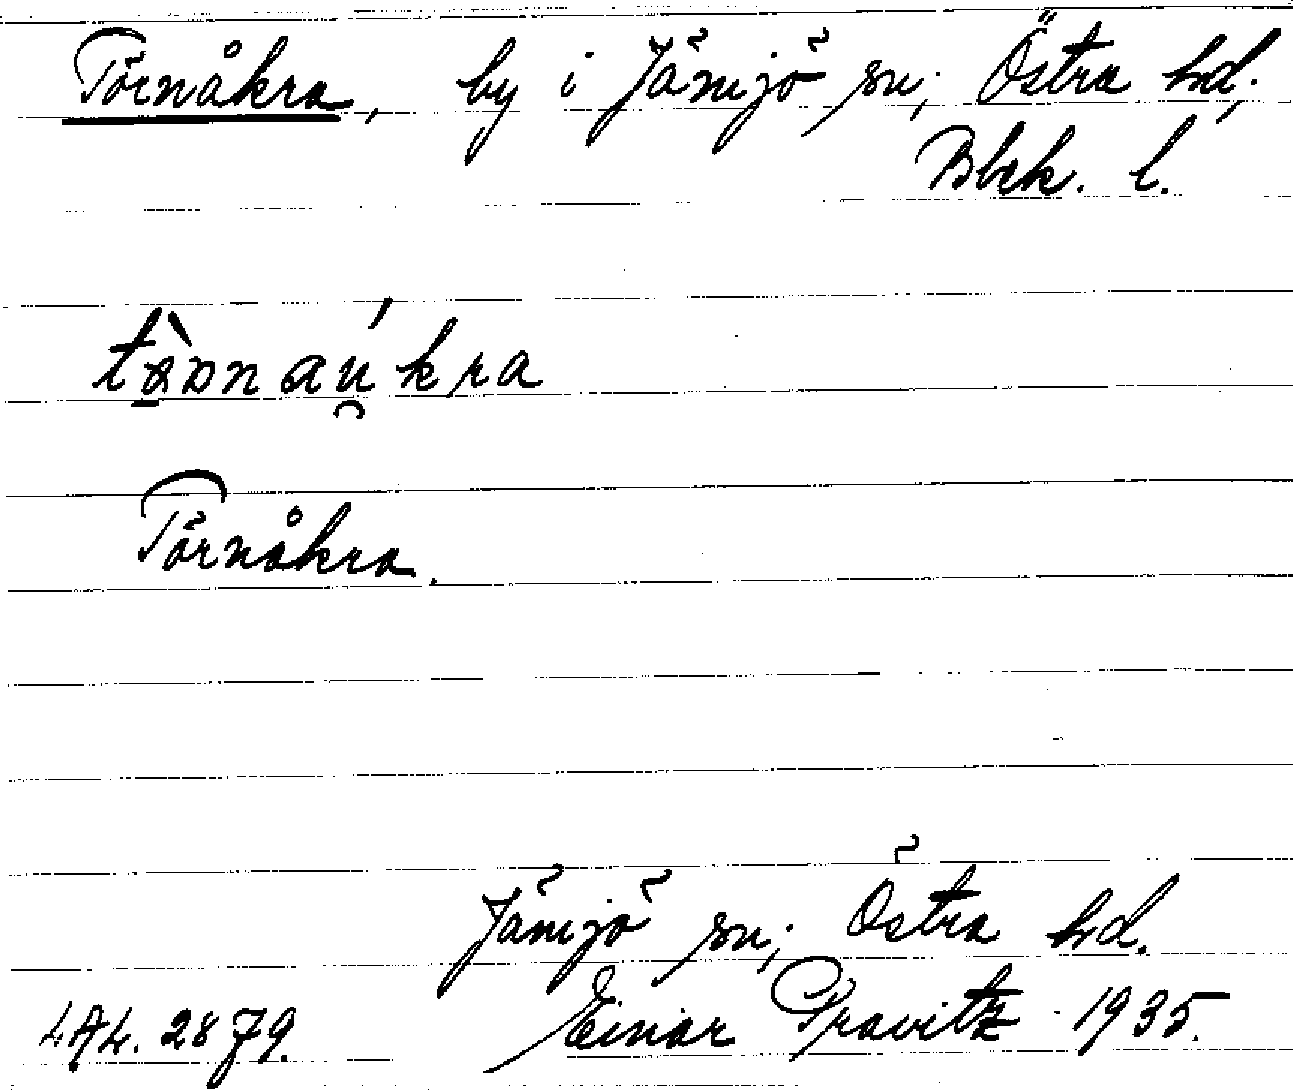 Törnåkra, by i Jämjö sn; Östra hd;
Blek. l.
Törnåkra.
Jämjö sn; Östra hd.
LAL. 2879. Einar Pravitz 1935.